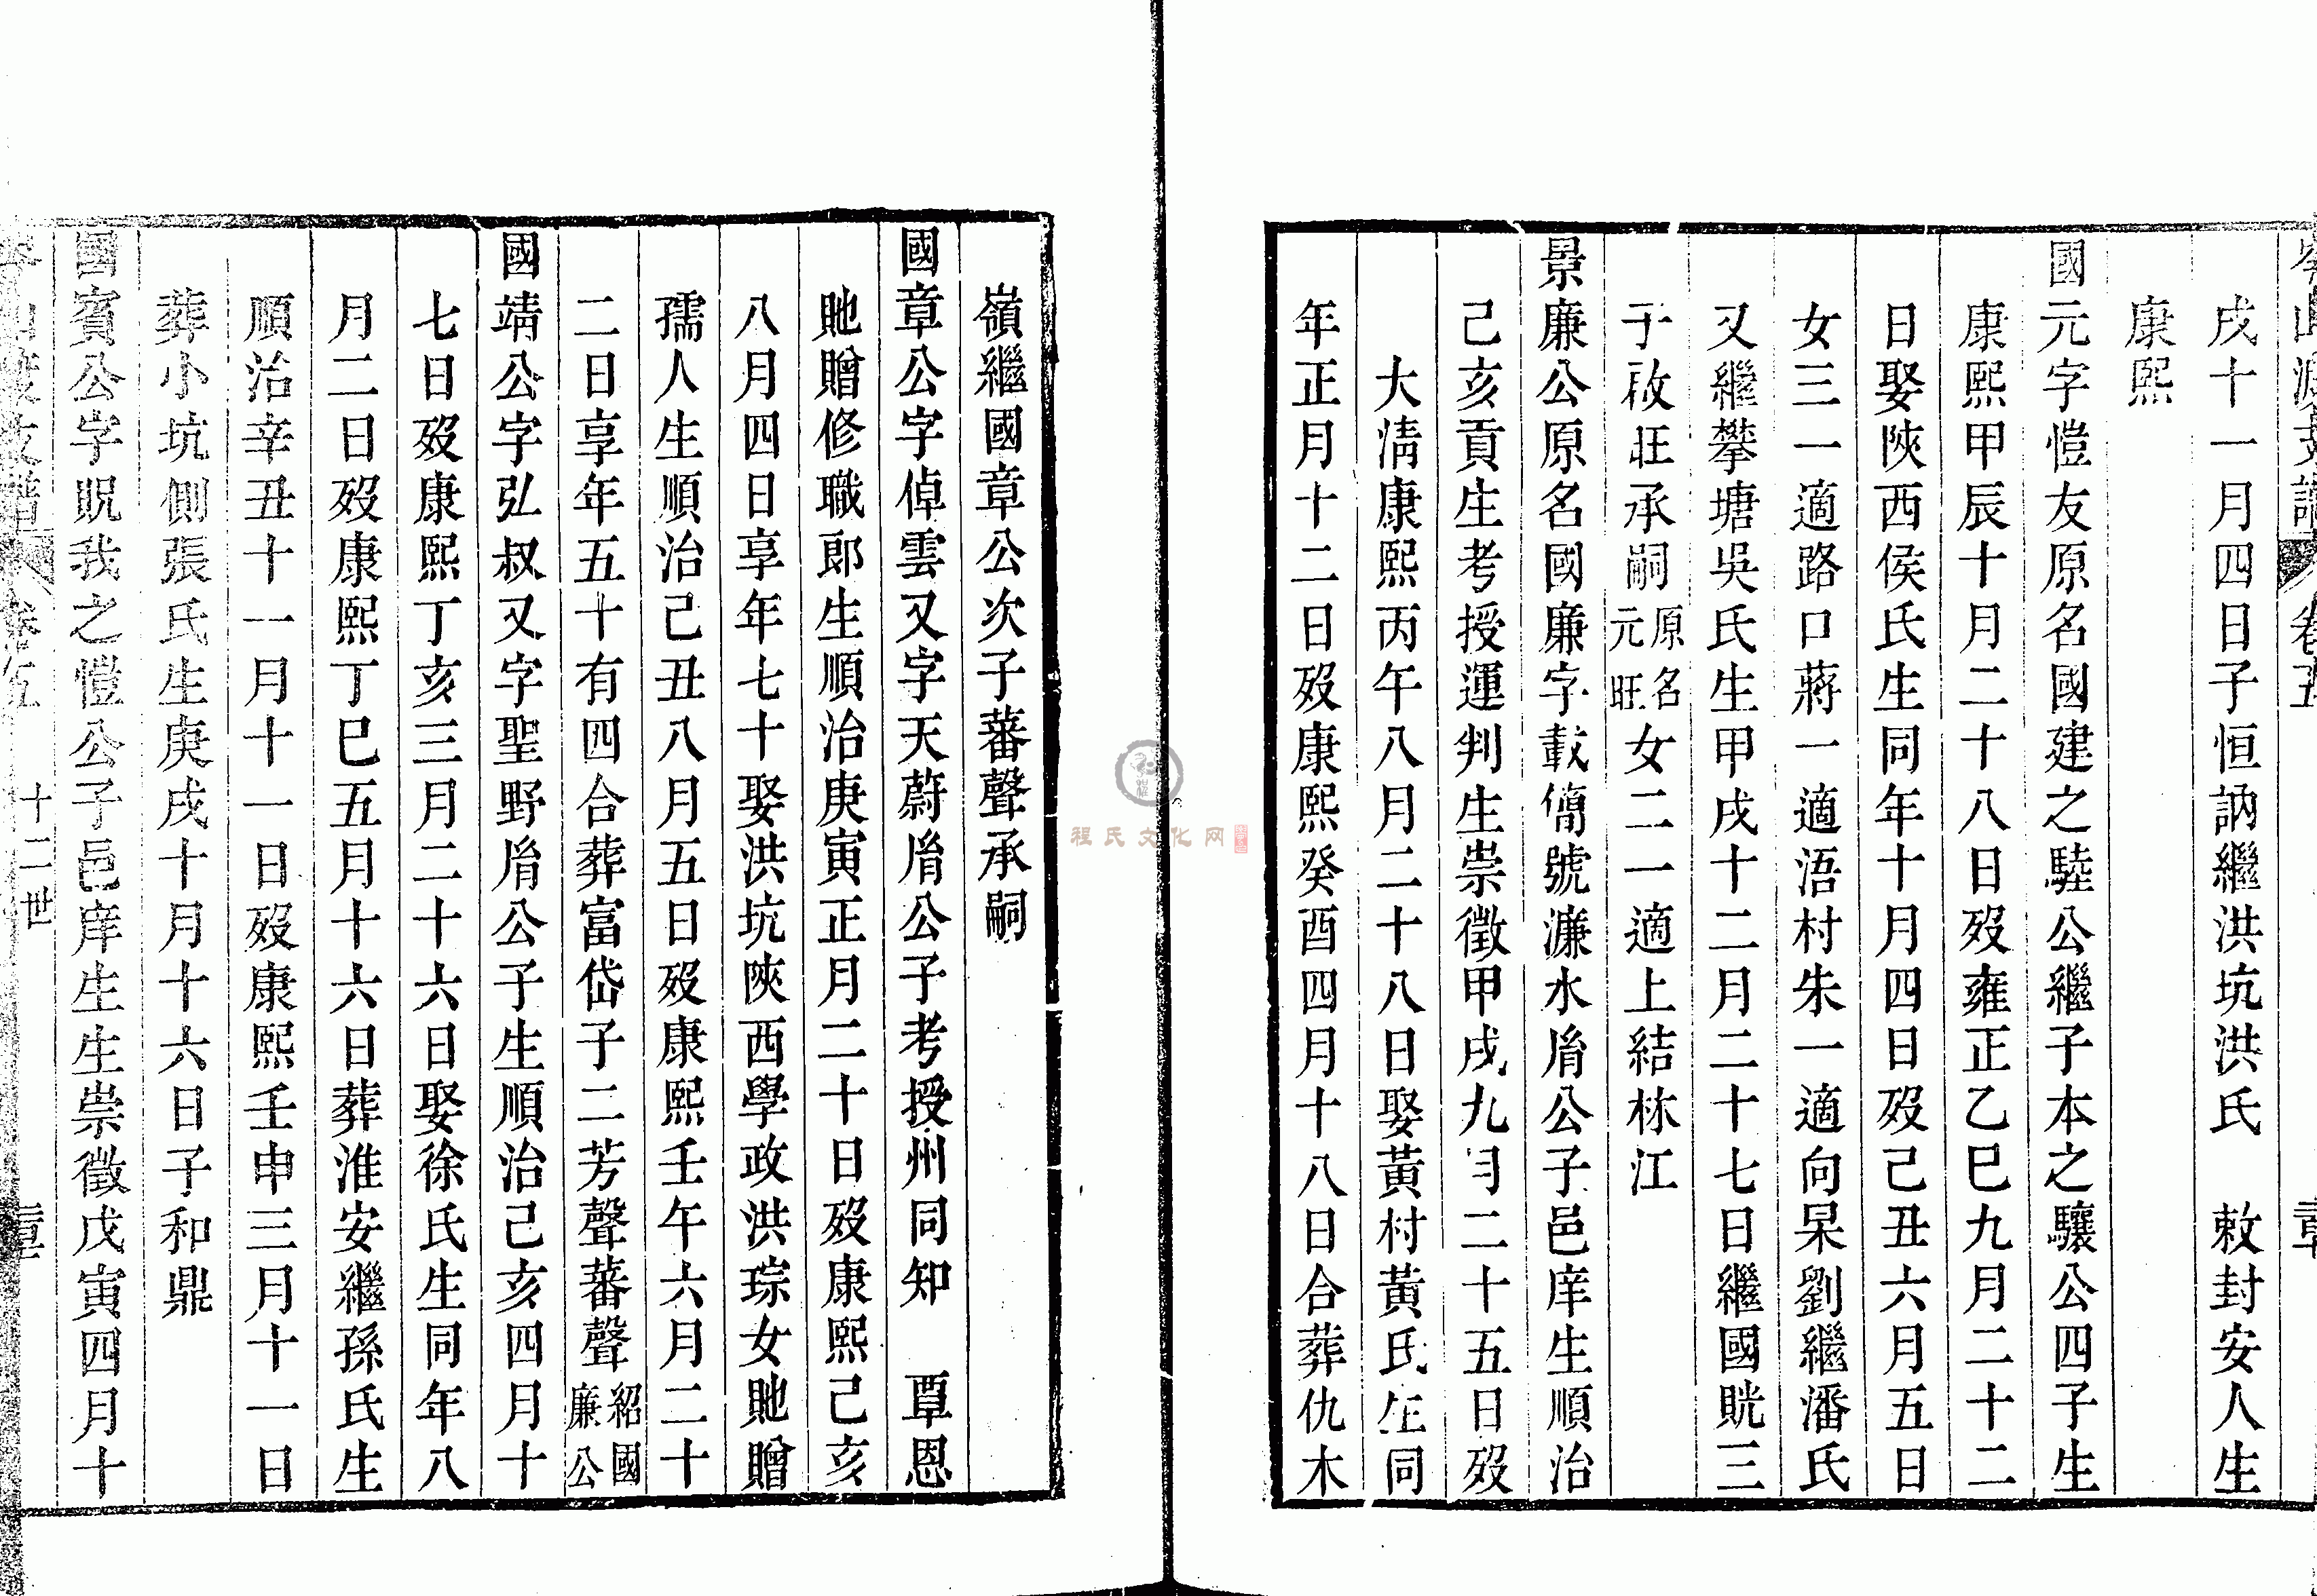 戌十一月四日子恒訥繼洪坑洪氏　敕封安人生
康熙
國元字愷友原名國建之驊公繼子本之驤公四子生
康熙甲辰十月二十八日歿雍正乙巳九月二十二
日娶陝西侯氏生同年十月四日歿己丑六月五日
女三一適路口蔣一適浯村朱一適向杲劉繼潘氏
又繼攀塘吳氏生甲戌十二月二十七日繼國晄三
子啟旺承嗣原名元旺女二一適上結林江
景廉公原名國廉字載簡號濂水㣧公子邑庠生順治
己亥貢生考授運判生崇徵甲戌九月二十五日歿
大淸康熙丙午八月二十八日娶黃村黃氏生同
年正月十二日歿康熙癸酉四月十八日合葬仇木
嶺繼國章公次子蕃聲承嗣
國章公字倬雲又字天蔚㣧公子考授州同知　覃恩
貤贈修職郎生順治庚寅正月二十日歿康熙己亥
八月四日享年七十娶洪坑陝西學政洪琮女貤贈
孺人生順治己丑八月五日歿康熙壬午六月二十
二日享年五十有四合葬富岱子二芳聲蕃聲紹國廉公
國靖公字弘叔又字聖野㣧公子生順治己亥四月十
七日歿康熙丁亥三月二十六日娶徐氏生同年八
月二日歿康熙丁巳五月十六日葬淮安繼孫氏生
順治辛丑十一月十一日歿康熙壬申三月十一日
葬小坑側張氏生庚戌十月十六日子和鼎
國賓公字貺我之愷公子邑庠生生崇徵戊寅四月十
卷五　十二世
程氏文化网